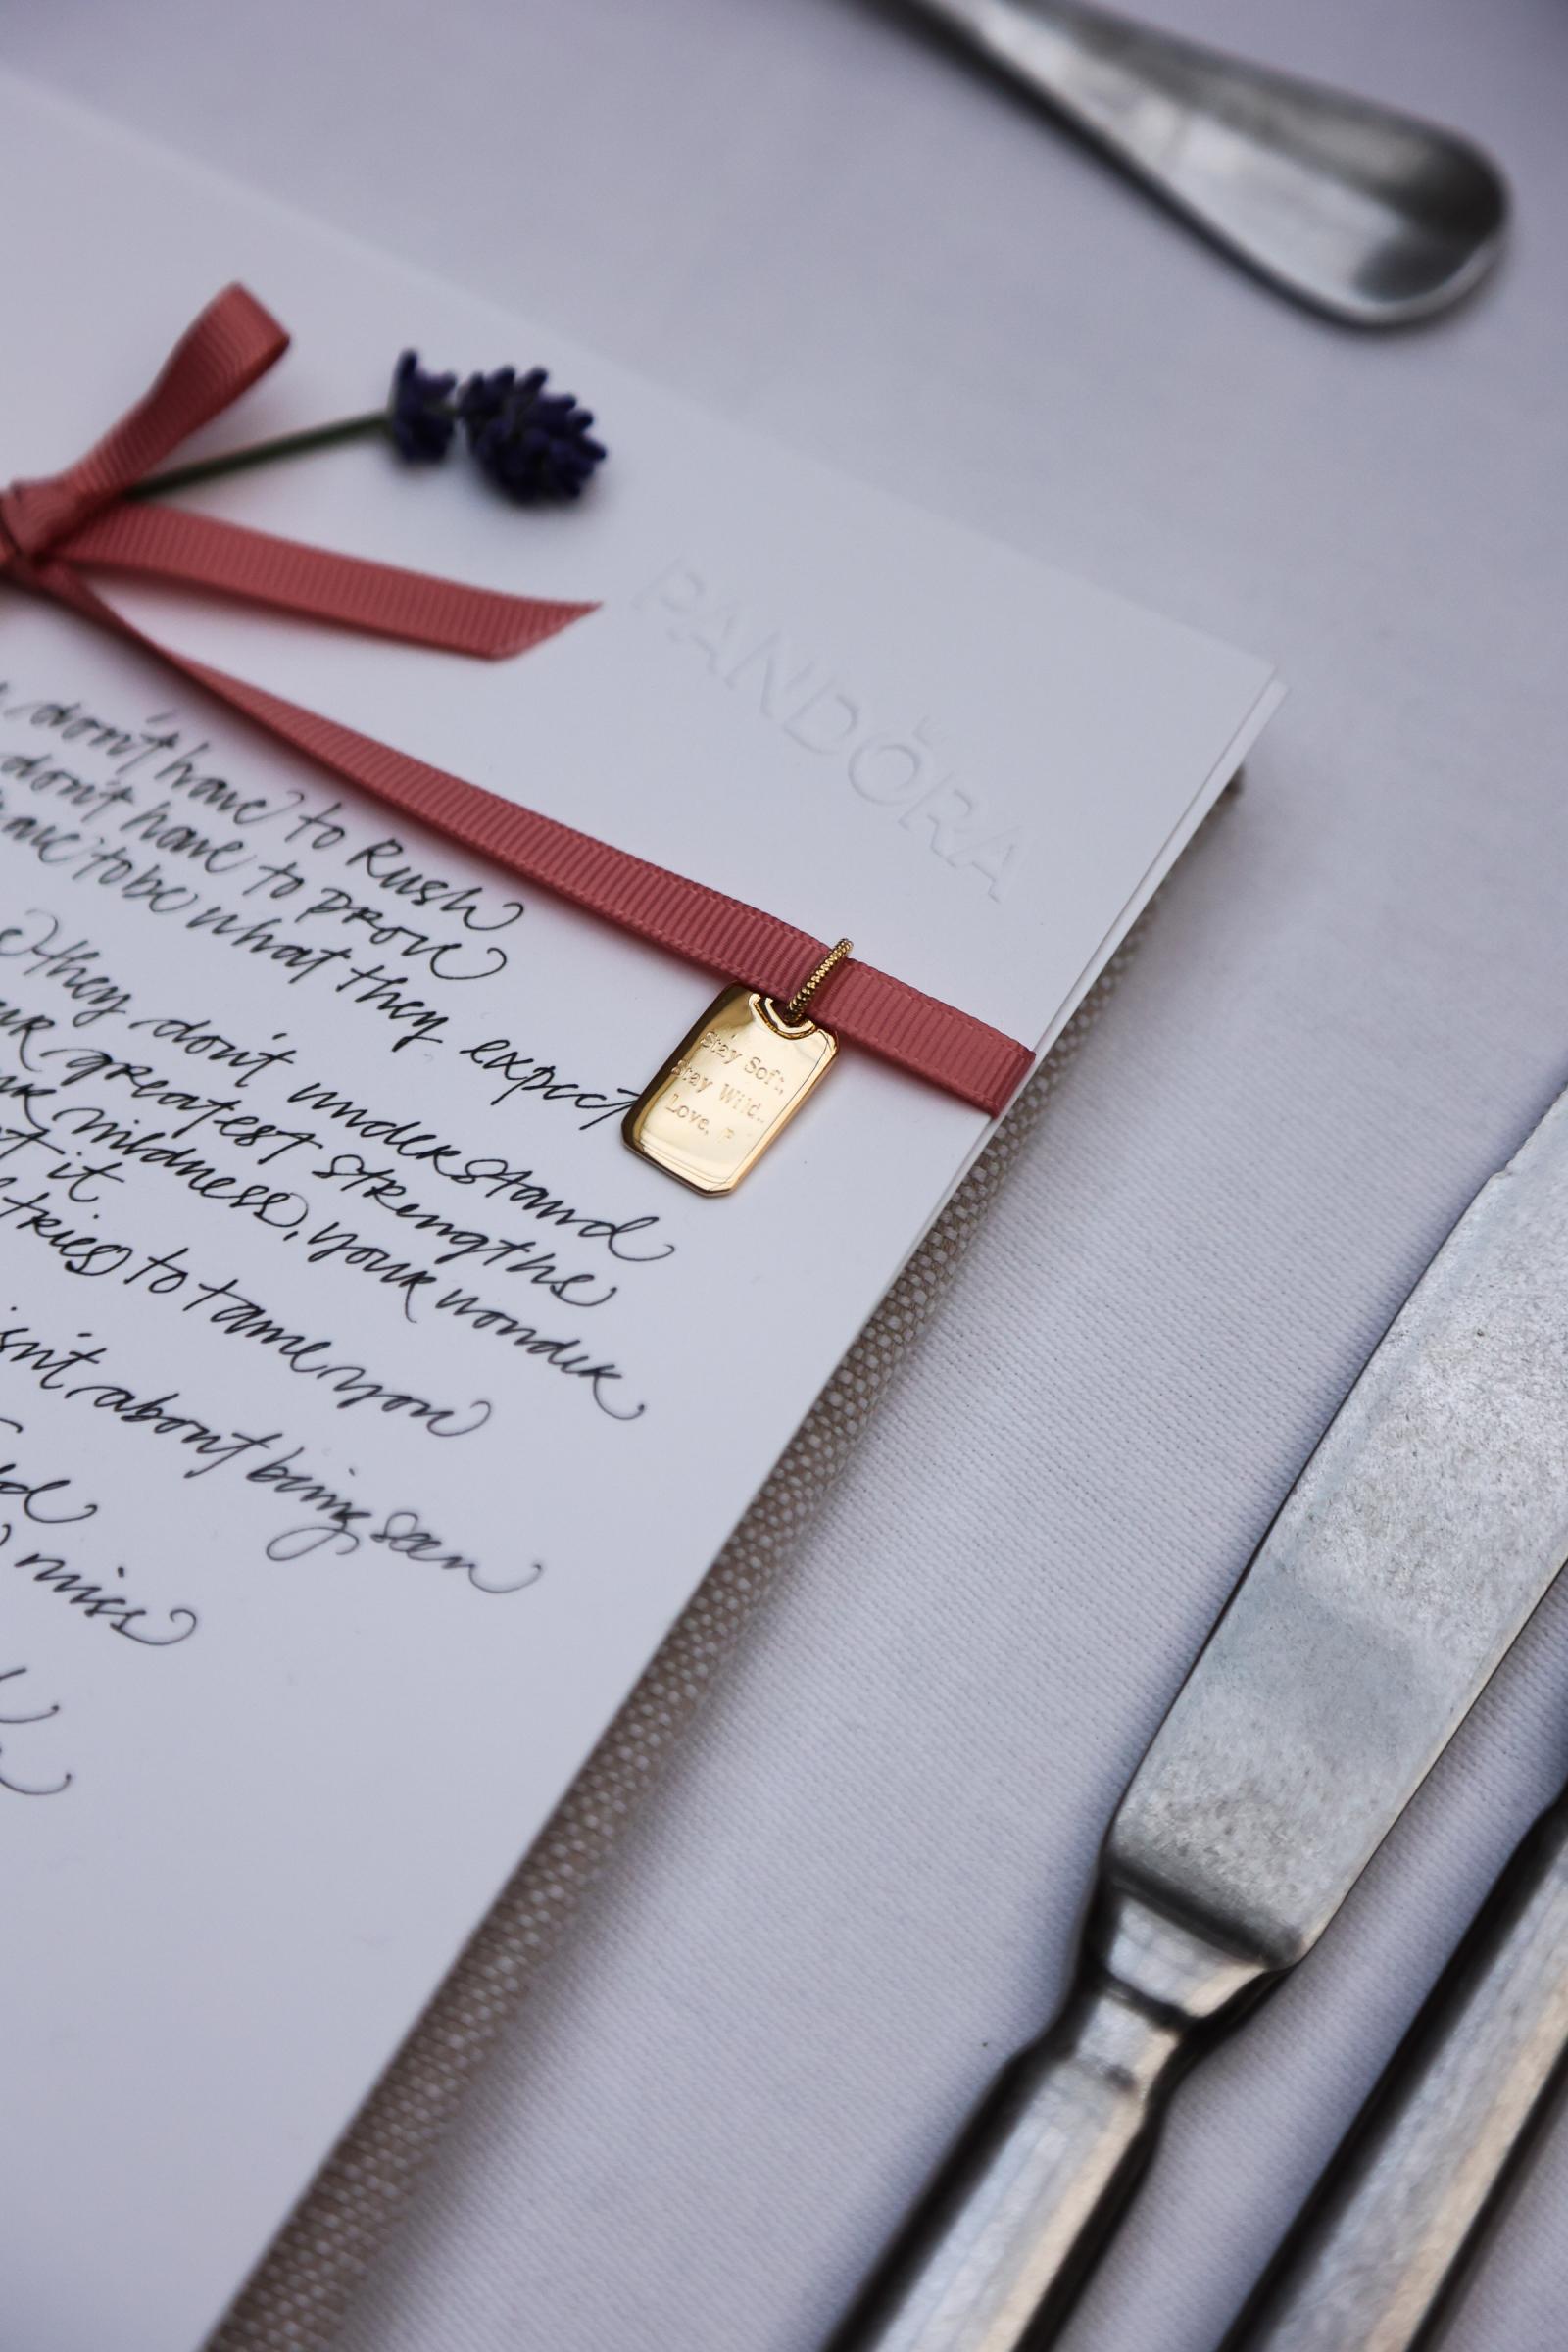 PANDORA
don't have to Rush
don't have to prove
to be what they expect
they don't understand
greatest strengths
wildness, your wonder
it
tries to tame you
isn't about being seen
miss
Stay Soft,
Stay Wild.
Love, P